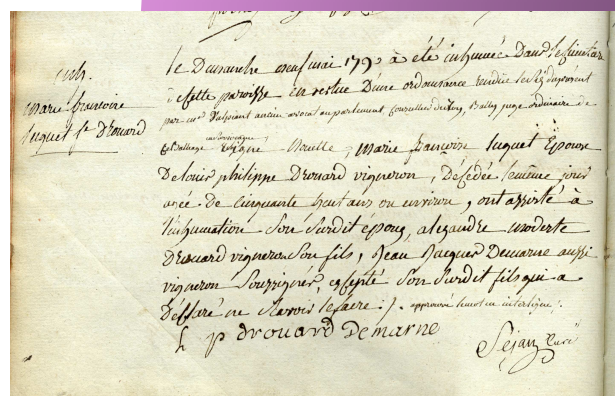 inh.
marie françoise
luquet fe Drouard
le Dimanche neuf mai 1790 à été inhumée Dans le cimetiere
de cette paroisse en vertue D'une ordonnance rendue
par me ancien avocat au parlement, conseiller du Roy, Bailly juge ordinaire de
marie françoise luquet Epouse
De louis philippe Drouard vigneron, Décédée le même jour
agée de cinquante huit ans ou environ, ont assisté à
l'inhumation Son Surdit époux, alexandre moderte
Drouard vigneron Son fils, Jean Jacques Demarne aussi
vigneron Soussignés, excepté Son Surdit fils qui a
Déclaré ne Scavoir le faire ./. approuvé le mot en interligne ./.
L p drouard Demarne
Séjan Curé